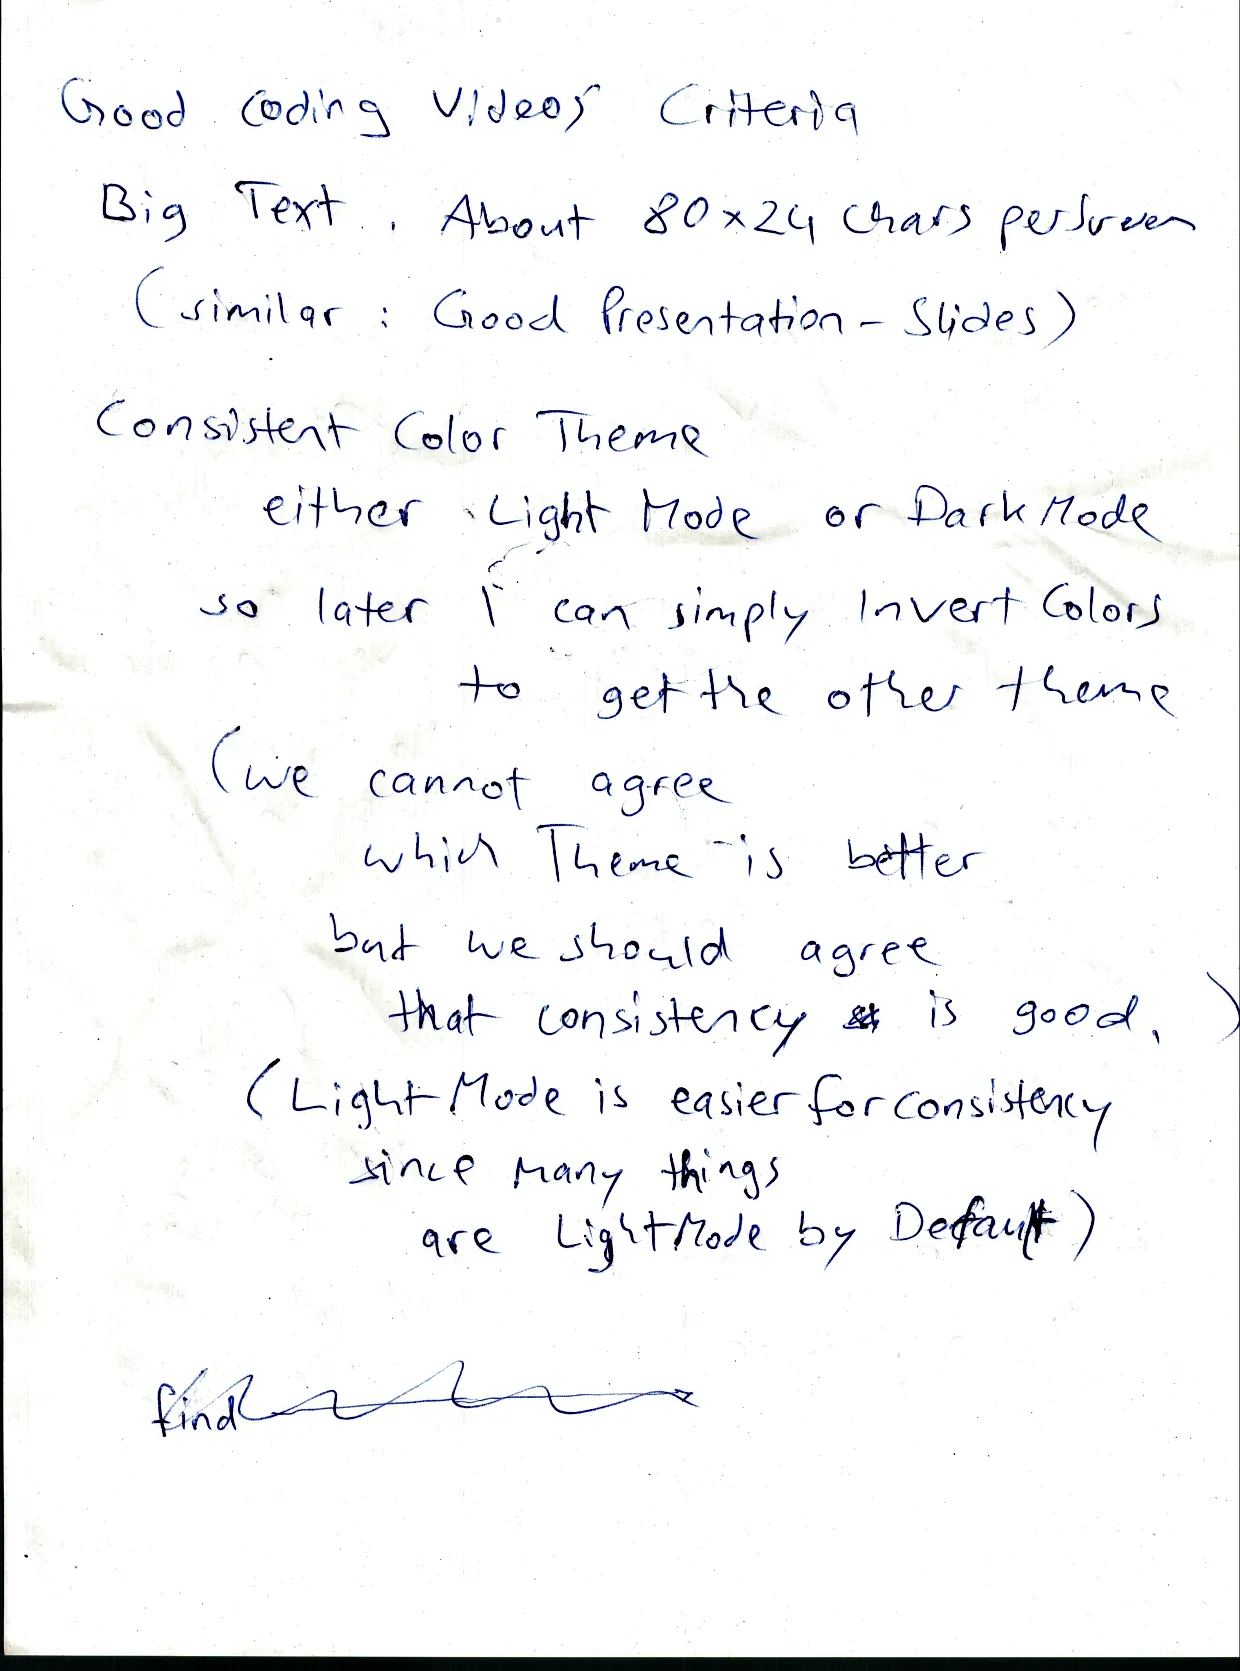 Good Coding Videos Criteria
Big Text. About 80x24 chars per Screen
(similar: Good Presentation-Slides)
Consistent Color Theme
either Light Mode or Dark Mode
so later I can simply Invert Colors
to get the other theme
(we cannot agree
which Theme is better
but we should agree
that consistency is good.)
(Light Mode is easier for consistency
since many things
are Light Mode by Default)
find